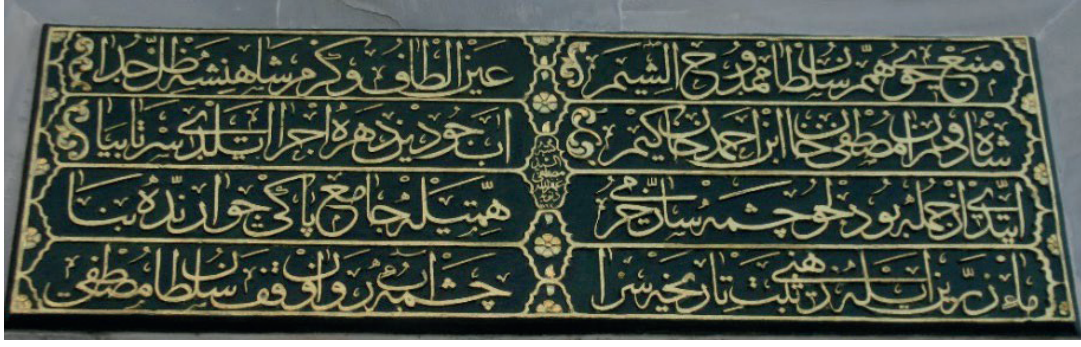 منبع جوی همم سلطان ممدوح الشیم
عین الطاف و کرم شاهنشه ظل خدا
شاه دوران مصطفی خان ابن احمد خان کیم
آب جودین دهره اجرا ایلدی سر تا بپا
ایتدی از جمله بو دلجو چشمه سار
همتیله جامع پاکی جوارنده بنا
ماء زرریز ایله ذهنی ثبت تاریخه سزا
چشمهٔ آب روان وقف سلطان مصطفی